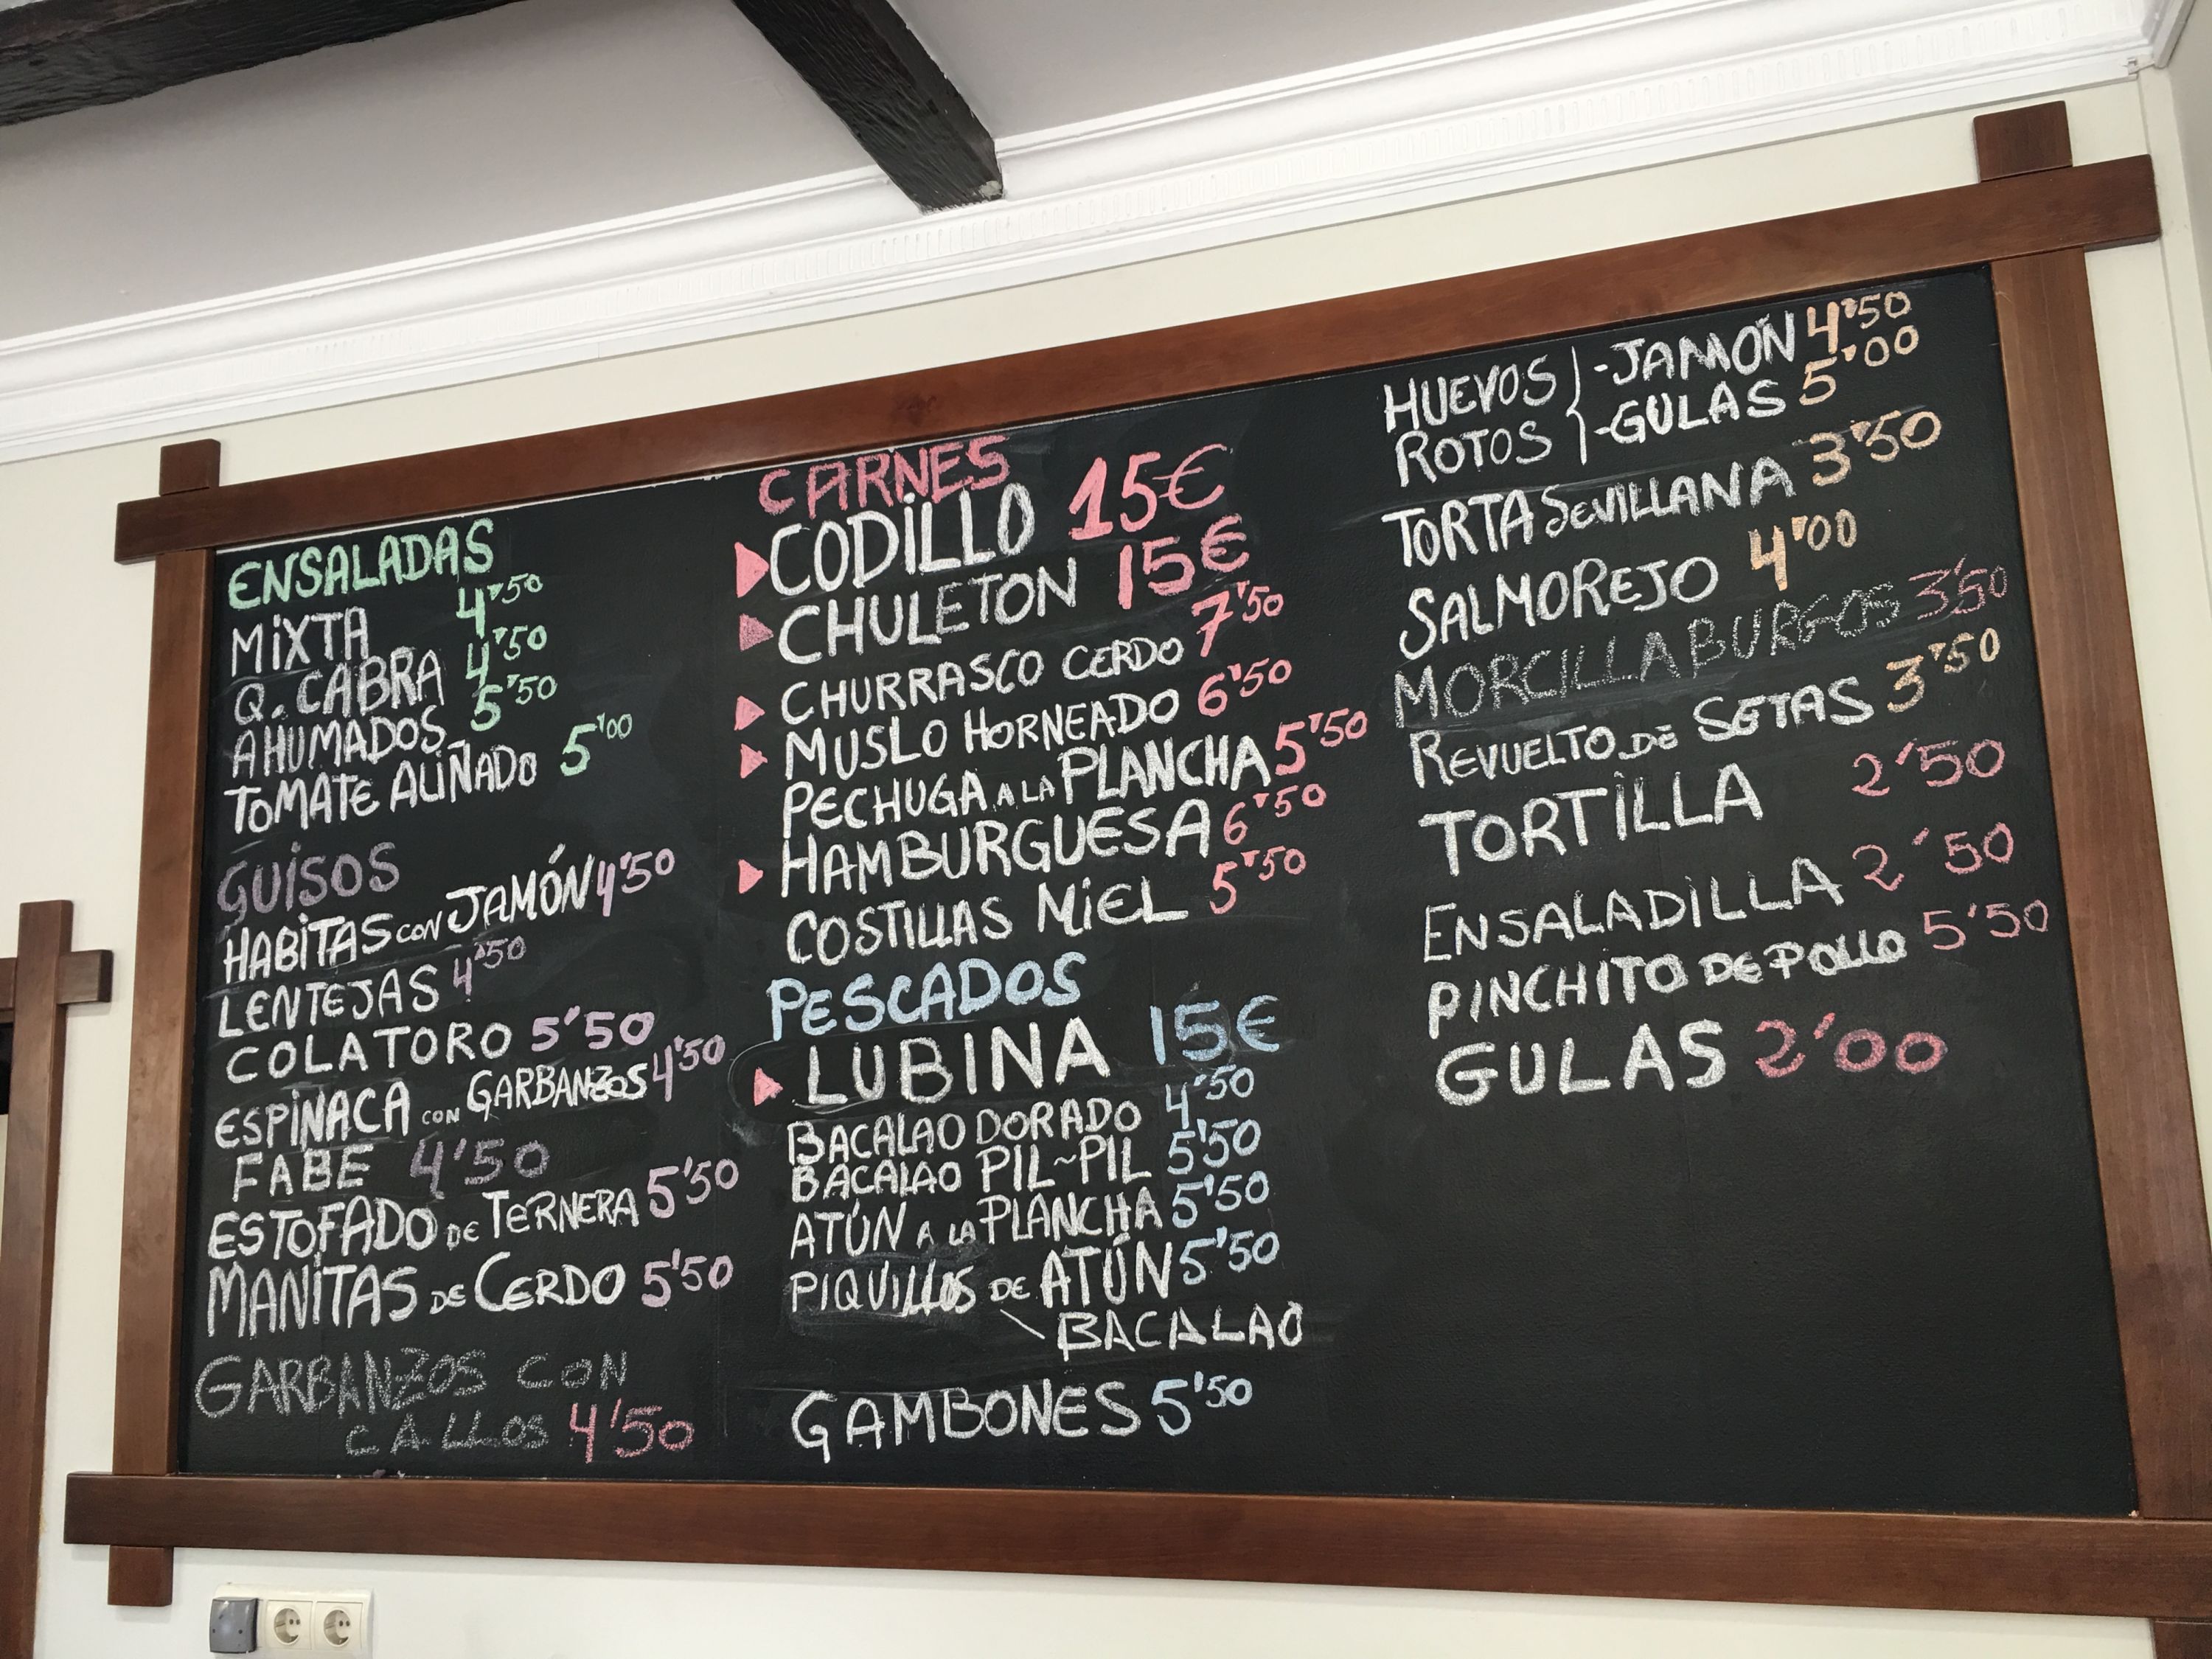 ENSALADAS
MIXTA 4'50
Q. CABRA 4'50
AHUMADOS 5'50
TOMATE ALIÑADO 5'00
GUISOS
HABITAS CON JAMÓN 4'50
LENTEJAS 4'50
COLATORO 5'50
ESPINACA CON GARBANZOS 4'50
FABE 4'50
ESTOFADO DE TERNERA 5'50
MANITAS DE CERDO 5'50
GARBANZOS CON
CALLOS 4'50
CARNES
CODILLO 15€
CHULETON 15€
CHURRASCO CERDO 7'50
MUSLO HORNEADO 6'50
PECHUGA A LA PLANCHA 5'50
HAMBURGUESA 6'50
COSTILLAS MIEL 5'50
PESCADOS
LUBINA 15€
BACALAO DORADO 4'50
BACALAO PIL~PIL 5'50
ATÚN A LA PLANCHA 5'50
PIQUILLOS DE ATÚN 5'50
BACALAO
GAMBONES 5'50
HUEVOS - JAMÓN 4'50
ROTOS - GULAS 5'00
TORTA SEVILLANA 3'50
SALMOREJO 4'00
MORCILLA BURGOS 3'50
REVUELTO DE SETAS 3'50
TORTILLA 2'50
ENSALADILLA 2'50
PINCHITO DE POLLO 5'50
GULAS 2'00